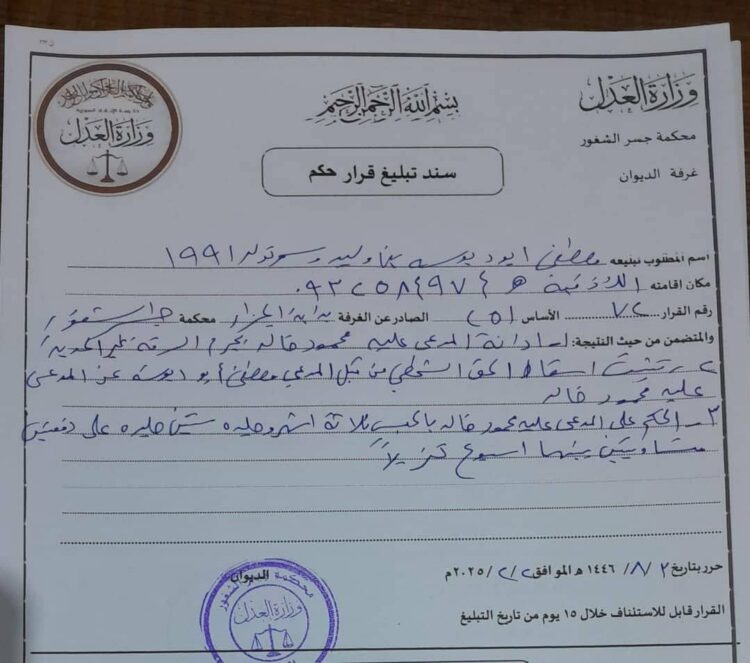 وزارة العدل
بسم الله الرحمن الرحيم
وزارة العدل
محكمة جسر الشغور
غرفة الديوان
سند تبليغ قرار حكم
اسم المطلوب تبليغه مصطفى ابو دبوسه بن وليد تولد ١٩٩١
مكان اقامته اللاذقية هـ
رقم القرار ٧٢ الأساس (٥١) الصادر عن الغرفة بداية الجزاء محكمة جسر الشغور
والمتضمن من حيث النتيجة: ١- ادانة المدعى عليه محمود خاله بجرم السرقة
٢- تثبيت اسقاط الحق الشخصي من قبل المدعي مصطفى أبو دبوسه عن المدعى
عليه محمود خاله
٣- الحكم على المدعى عليه محمود خاله بالحبس ثلاثة اشهر وجلده ستين جلده على دفعتين
متساويتين بينهما اسبوع تعزيراً
حرر بتاريخ ٢ /٨/ ١٤٤٦ هـ الموافق ٢ /٢/ ٢٠٢٥م
الديوان
القرار قابل للاستئناف خلال ١٥ يوم من تاريخ التبليغ
محكمة جسر الشغور
وزارة العدل